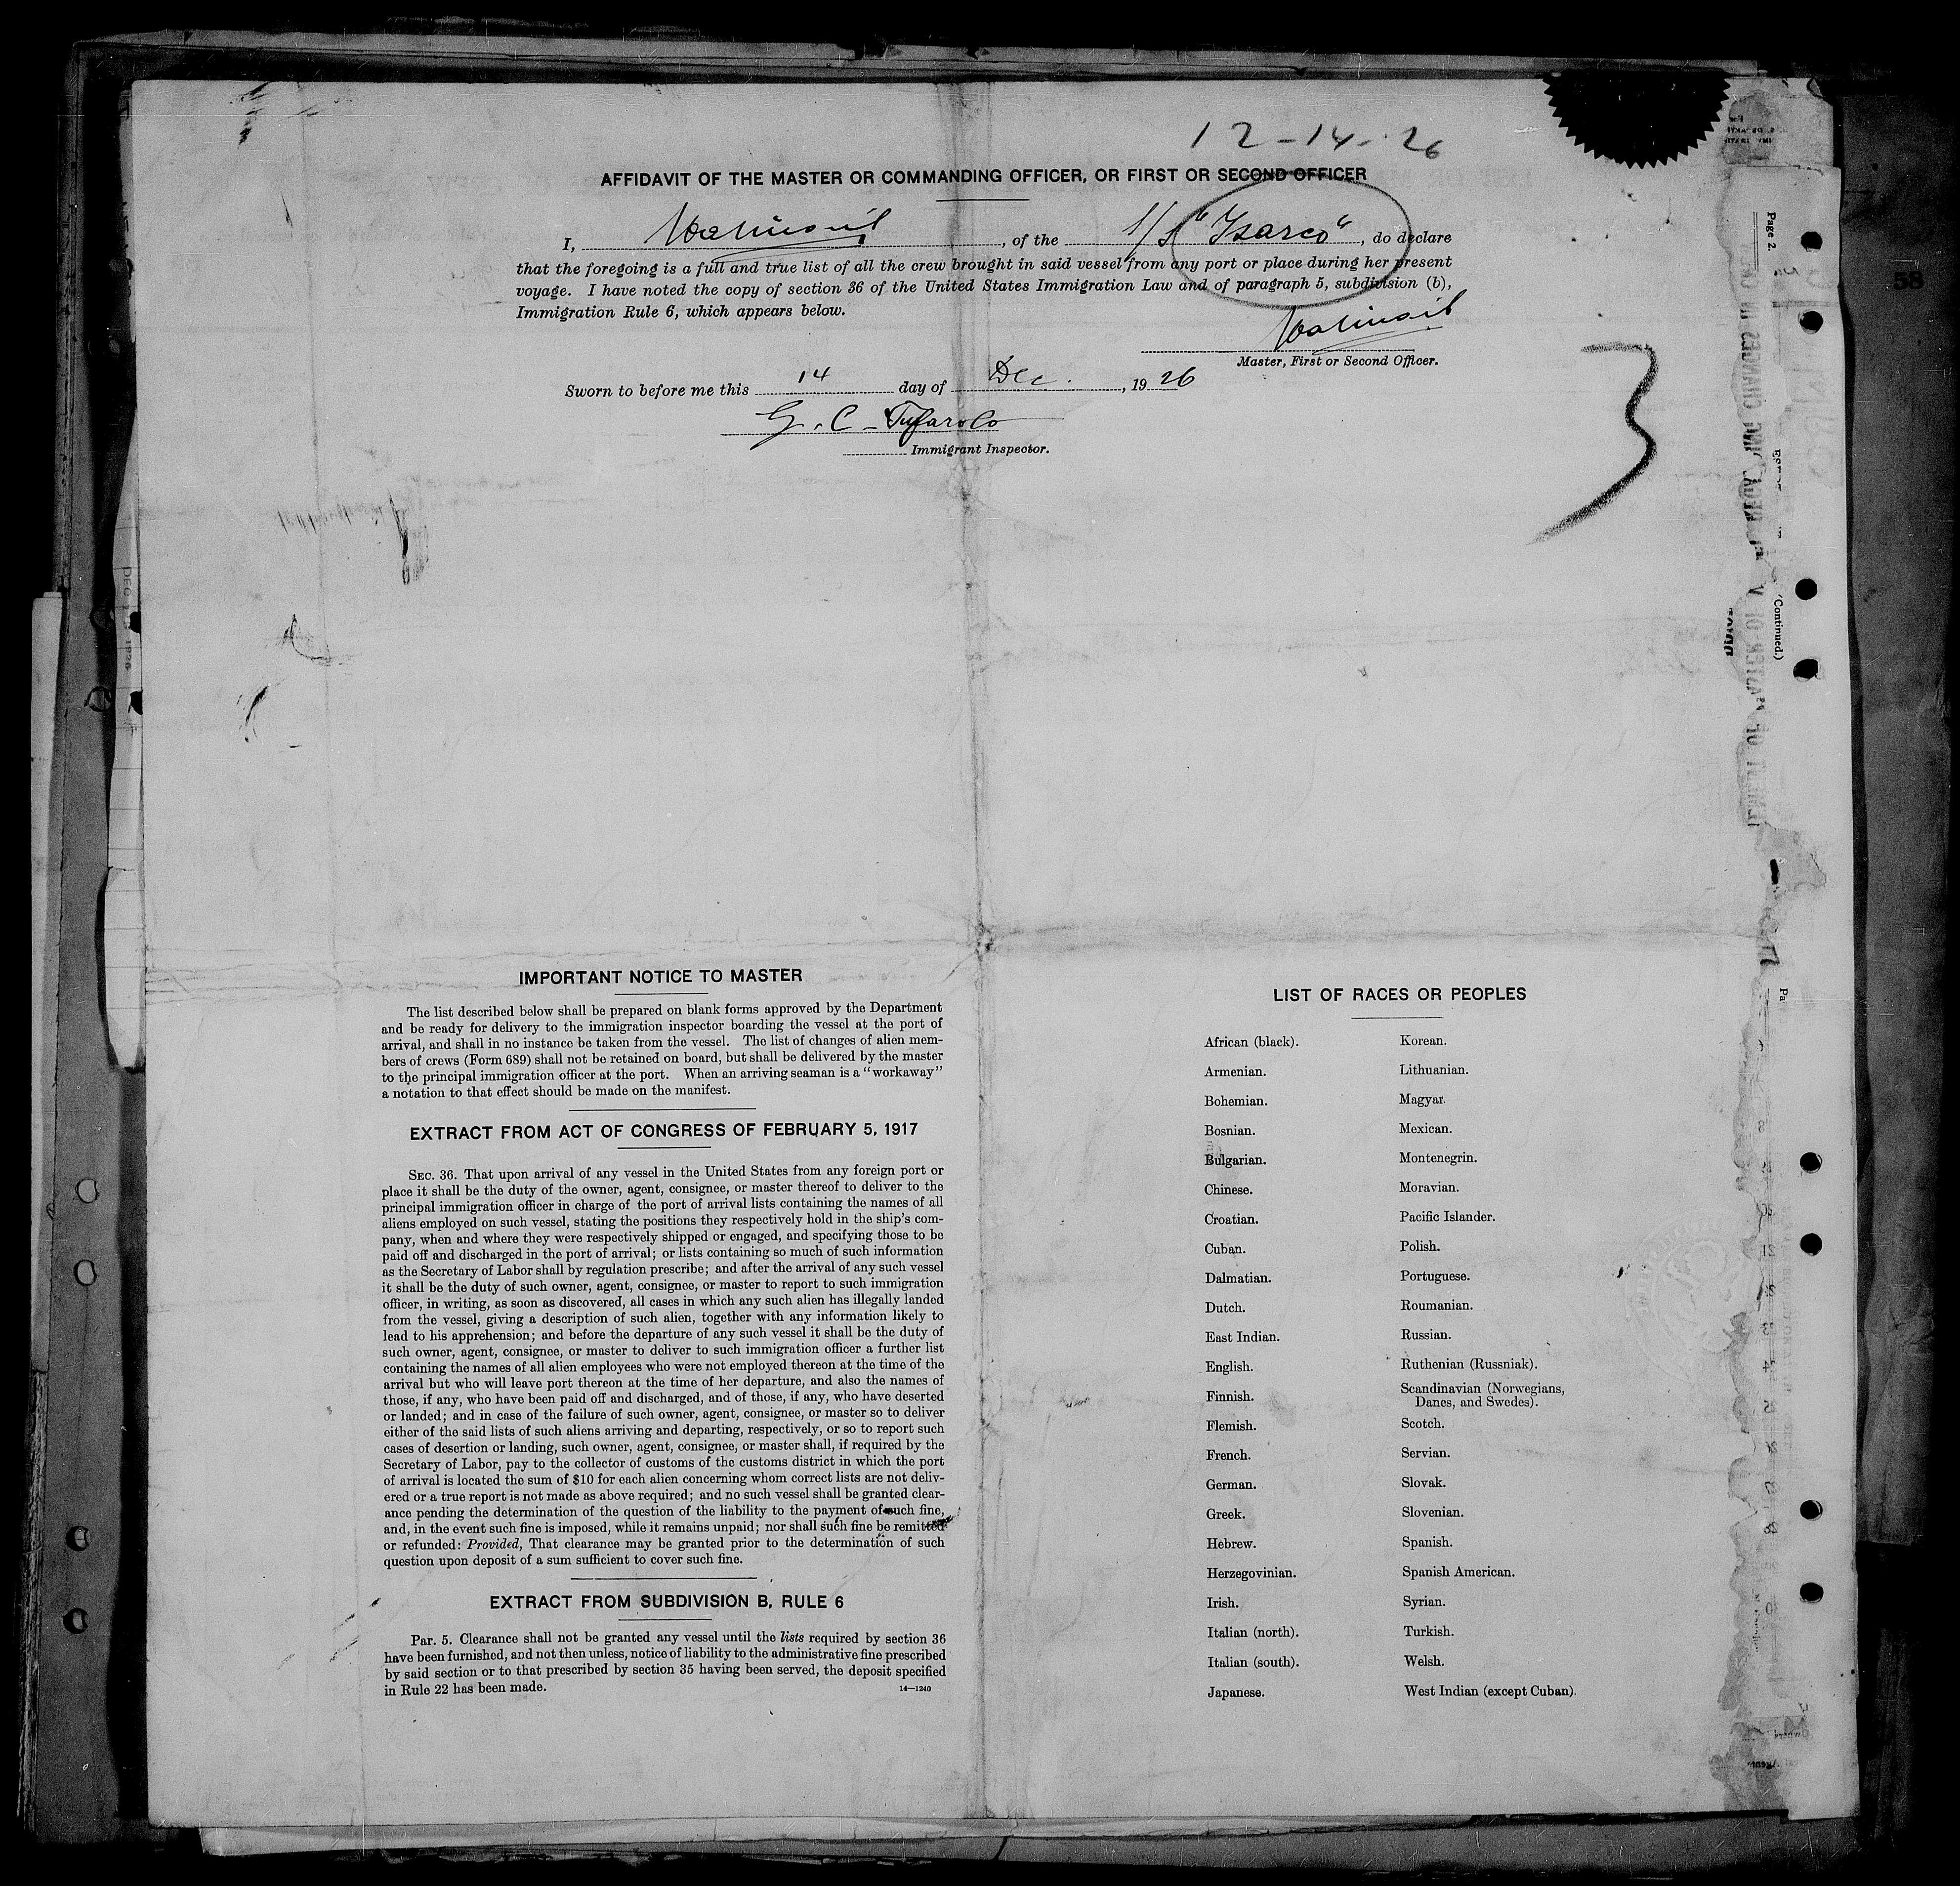 12-14-26
AFFIDAVIT OF THE MASTER OR COMMANDING OFFICER, OR FIRST OR SECOND OFFICER
I, , of the S/S "Isarco", do declare
that the foregoing is a full and true list of all the crew brought in said vessel from any port or place during her present
voyage. I have noted the copy of section 36 of the United States Immigration Law and of paragraph 5, subdivision (b),
Immigration Rule 6, which appears below.
Master, First or Second Officer.
3
Sworn to before me this 14 day of Dec., 1926
G. C. Tufarolo
Immigrant Inspector.
IMPORTANT NOTICE TO MASTER
The list described below shall be prepared on blank forms approved by the Department
and be ready for delivery to the immigration inspector boarding the vessel at the port of
arrival, and shall in no instance be taken from the vessel. The list of changes of alien mem-
bers of crews (Form 689) shall not be retained on board, but shall be delivered by the master
to the principal immigration officer at the port. When an arriving seaman is a "workaway"
a notation to that effect should be made on the manifest.
EXTRACT FROM ACT OF CONGRESS OF FEBRUARY 5, 1917
SEC. 36. That upon arrival of any vessel in the United States from any foreign port or
place it shall be the duty of the owner, agent, consignee, or master thereof to deliver to the
principal immigration officer in charge of the port of arrival lists containing the names of all
aliens employed on such vessel, stating the positions they respectively hold in the ship's com-
pany, when and where they were respectively shipped or engaged, and specifying those to be
paid off and discharged in the port of arrival; or lists containing so much of such information
as the Secretary of Labor shall by regulation prescribe; and after the arrival of any such vessel
it shall be the duty of such owner, agent, consignee, or master to report to such immigration
officer, in writing, as soon as discovered, all cases in which any such alien has illegally landed
from the vessel, giving a description of such alien, together with any information likely to
lead to his apprehension; and before the departure of any such vessel it shall be the duty of
such owner, agent, consignee, or master to deliver to such immigration officer a further list
containing the names of all alien employees who were not employed thereon at the time of the
arrival but who will leave port thereon at the time of her departure, and also the names of
those, if any, who have been paid off and discharged, and of those, if any, who have deserted
or landed; and in case of the failure of such owner, agent, consignee, or master so to deliver
either of the said lists of such aliens arriving and departing, respectively, or so to report such
cases of desertion or landing, such owner, agent, consignee, or master shall, if required by the
Secretary of Labor, pay to the collector of customs of the customs district in which the port
of arrival is located the sum of $10 for each alien concerning whom correct lists are not deliv-
ered or a true report is not made as above required; and no such vessel shall be granted clear-
ance pending the determination of the question of the liability to the payment of such fine,
and, in the event such fine is imposed, while it remains unpaid; nor shall such fine be remitted
or refunded: Provided, That clearance may be granted prior to the determination of such
question upon deposit of a sum sufficient to cover such fine.
EXTRACT FROM SUBDIVISION B, RULE 6
Par. 5. Clearance shall not be granted any vessel until the lists required by section 36
have been furnished, and not then unless, notice of liability to the administrative fine prescribed
by said section or to that prescribed by section 35 having been served, the deposit specified
in Rule 22 has been made.
14—1240
LIST OF RACES OR PEOPLES
African (black). Korean.
Armenian. Lithuanian.
Bohemian. Magyar.
Bosnian. Mexican.
Bulgarian. Montenegrin.
Chinese. Moravian.
Croatian. Pacific Islander.
Cuban. Polish.
Dalmatian. Portuguese.
Dutch. Roumanian.
East Indian. Russian.
English. Ruthenian (Russniak).
Finnish. Scandinavian (Norwegians,
Danes, and Swedes).
Flemish. Scotch.
French. Servian.
German. Slovak.
Greek. Slovenian.
Hebrew. Spanish.
Herzegovinian. Spanish American.
Irish. Syrian.
Italian (north). Turkish.
Italian (south). Welsh.
Japanese. West Indian (except Cuban).
Page 2.
(Continued.)
58